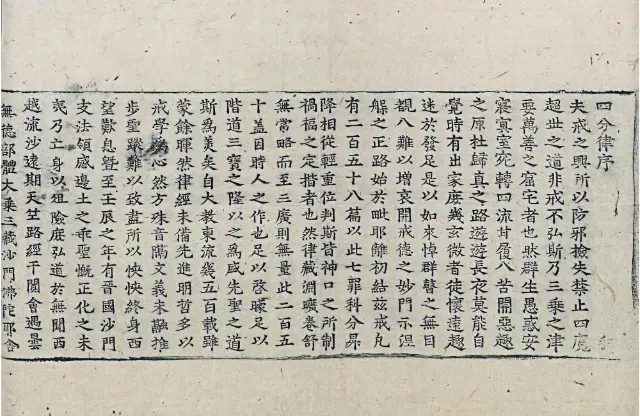 四分律序
夫戒之興所以防邪檢失禁止四魔
超世之道非戒不弘斯乃三乘之津
要萬善之窟宅者也然群生愚惑安
寢冥室宛轉四流甘履八苦開惡趣
之原杜歸真之路遊遊長夜莫能自
覺時有出家庶幾玄微者徒懷遠趣
迷於發足是以如來悼群瞽之無目
覩八難以增哀開戒德之妙門示涅
槃之正路始於毗耶離初結茲戒凡
有二百五十八篇以此七罪科分昇
降相從輕重位判斯皆神口之所制
禍福之定楷者也然律藏淵曠卷舒
無常略而至三廣則無量此二百五
十蓋因時人之作也足以啓曚足以
階道三寶之隆以之為盛先聖之道
斯為美矣自大教東流幾五百載雖
蒙餘暉然律經未備先進明哲多以
戒學為心然方殊音隔文義未融推
步聖蹤難以致盡所以怏怏終身西
望歎息暨至壬辰之年有晉國沙門
支法領感邊土之乖聖慨正化之未
夷乃亡身以俎險庶弘道於無聞西
越流沙遠期天竺路經于闐會遇曇
無德部體大乘三藏沙門佛陀耶舍